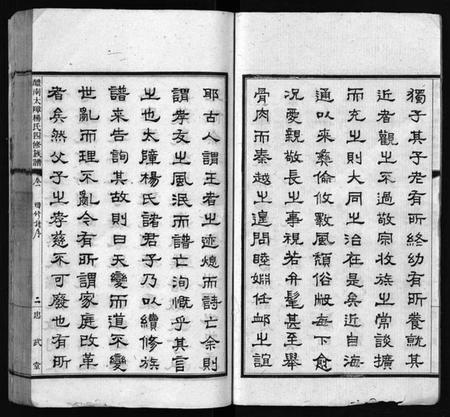 獨子其子老有所終幼有所養就其
近者觀之不過敬宗收族之常談擴
而充之則大同之治在是矣近自海
通以來彝倫攸斁風頹俗敗每下愈
況愛親敬長之事視若弁髦甚至舉
骨肉而秦越之遑問睦婣任邮之誼
醴南太障楊氏四修族譜
卷一
四修譜序
二
忠武堂
耶古人謂王者之迹熄而詩亡余則
謂孝友之風泯而譜亡洵慨乎其言
之也太障楊氏諸君子乃以續修族
譜來告詢其故則曰天變而道不變
世亂而理不亂今有所謂家庭改革
者矣然父子之孝慈不可廢也有所